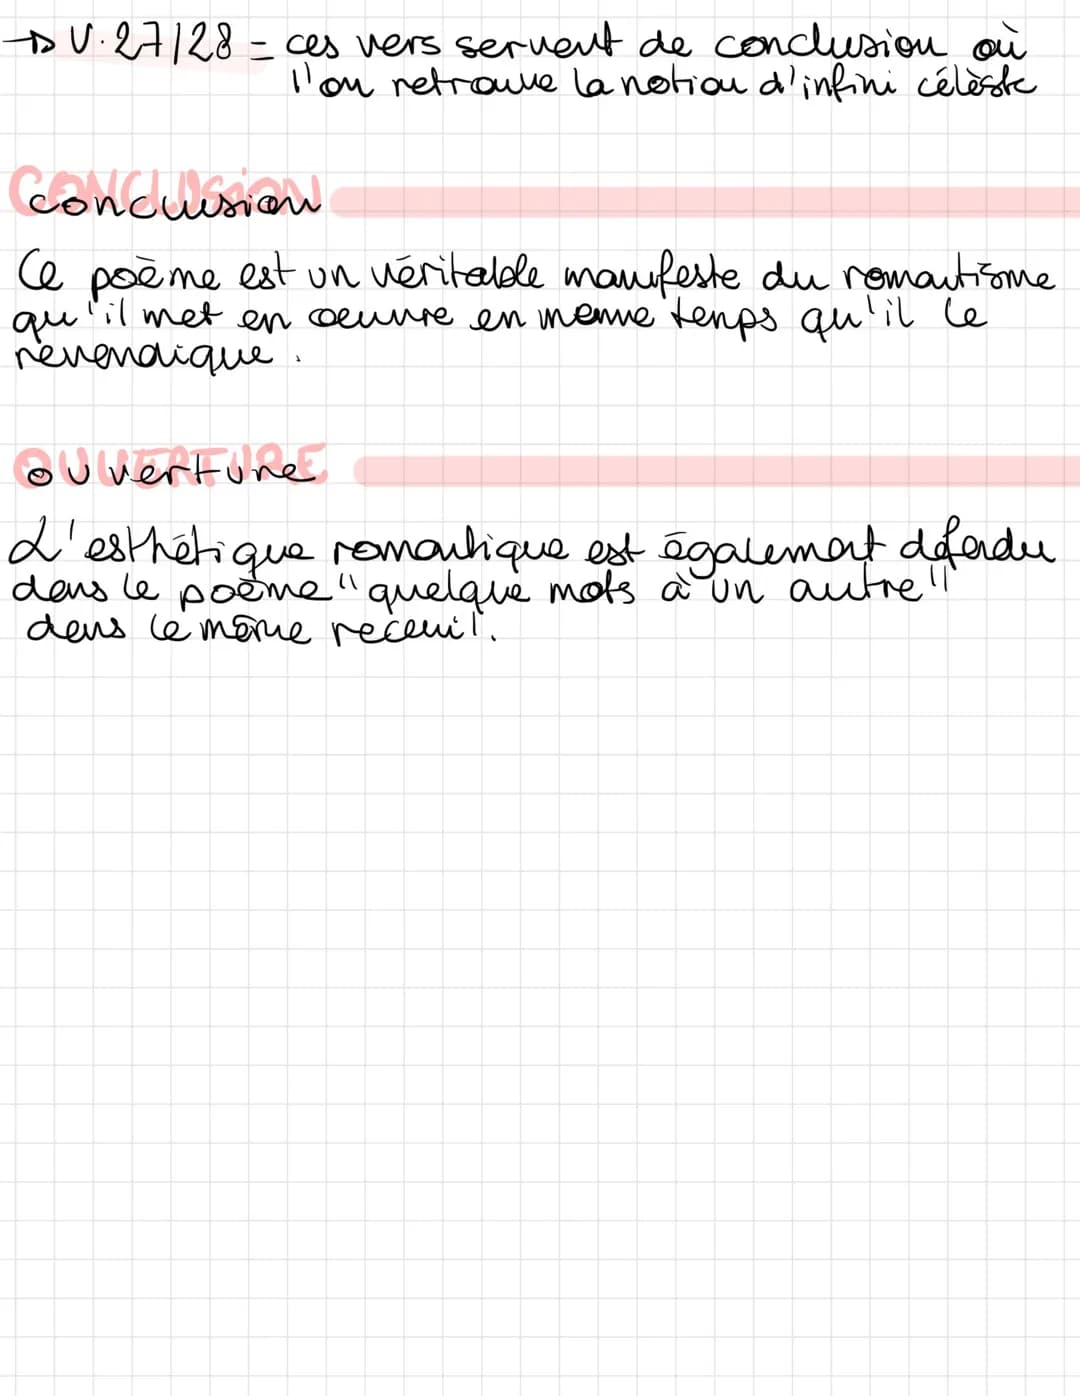 → V.27/28 = ces vers servent de conclusion où
l'on retrouve la notion d'infini célèste
CONCLUSION
conclusion
Ce poème est un véritable manifeste du romantisme
qu'il met en oeuvre en meme temps qu'il le
revendique.
OUVERTURE
ouverture
L'esthétique romantique est également défendu
dans le poème "quelque mots à un autre"
dans le même receuil.